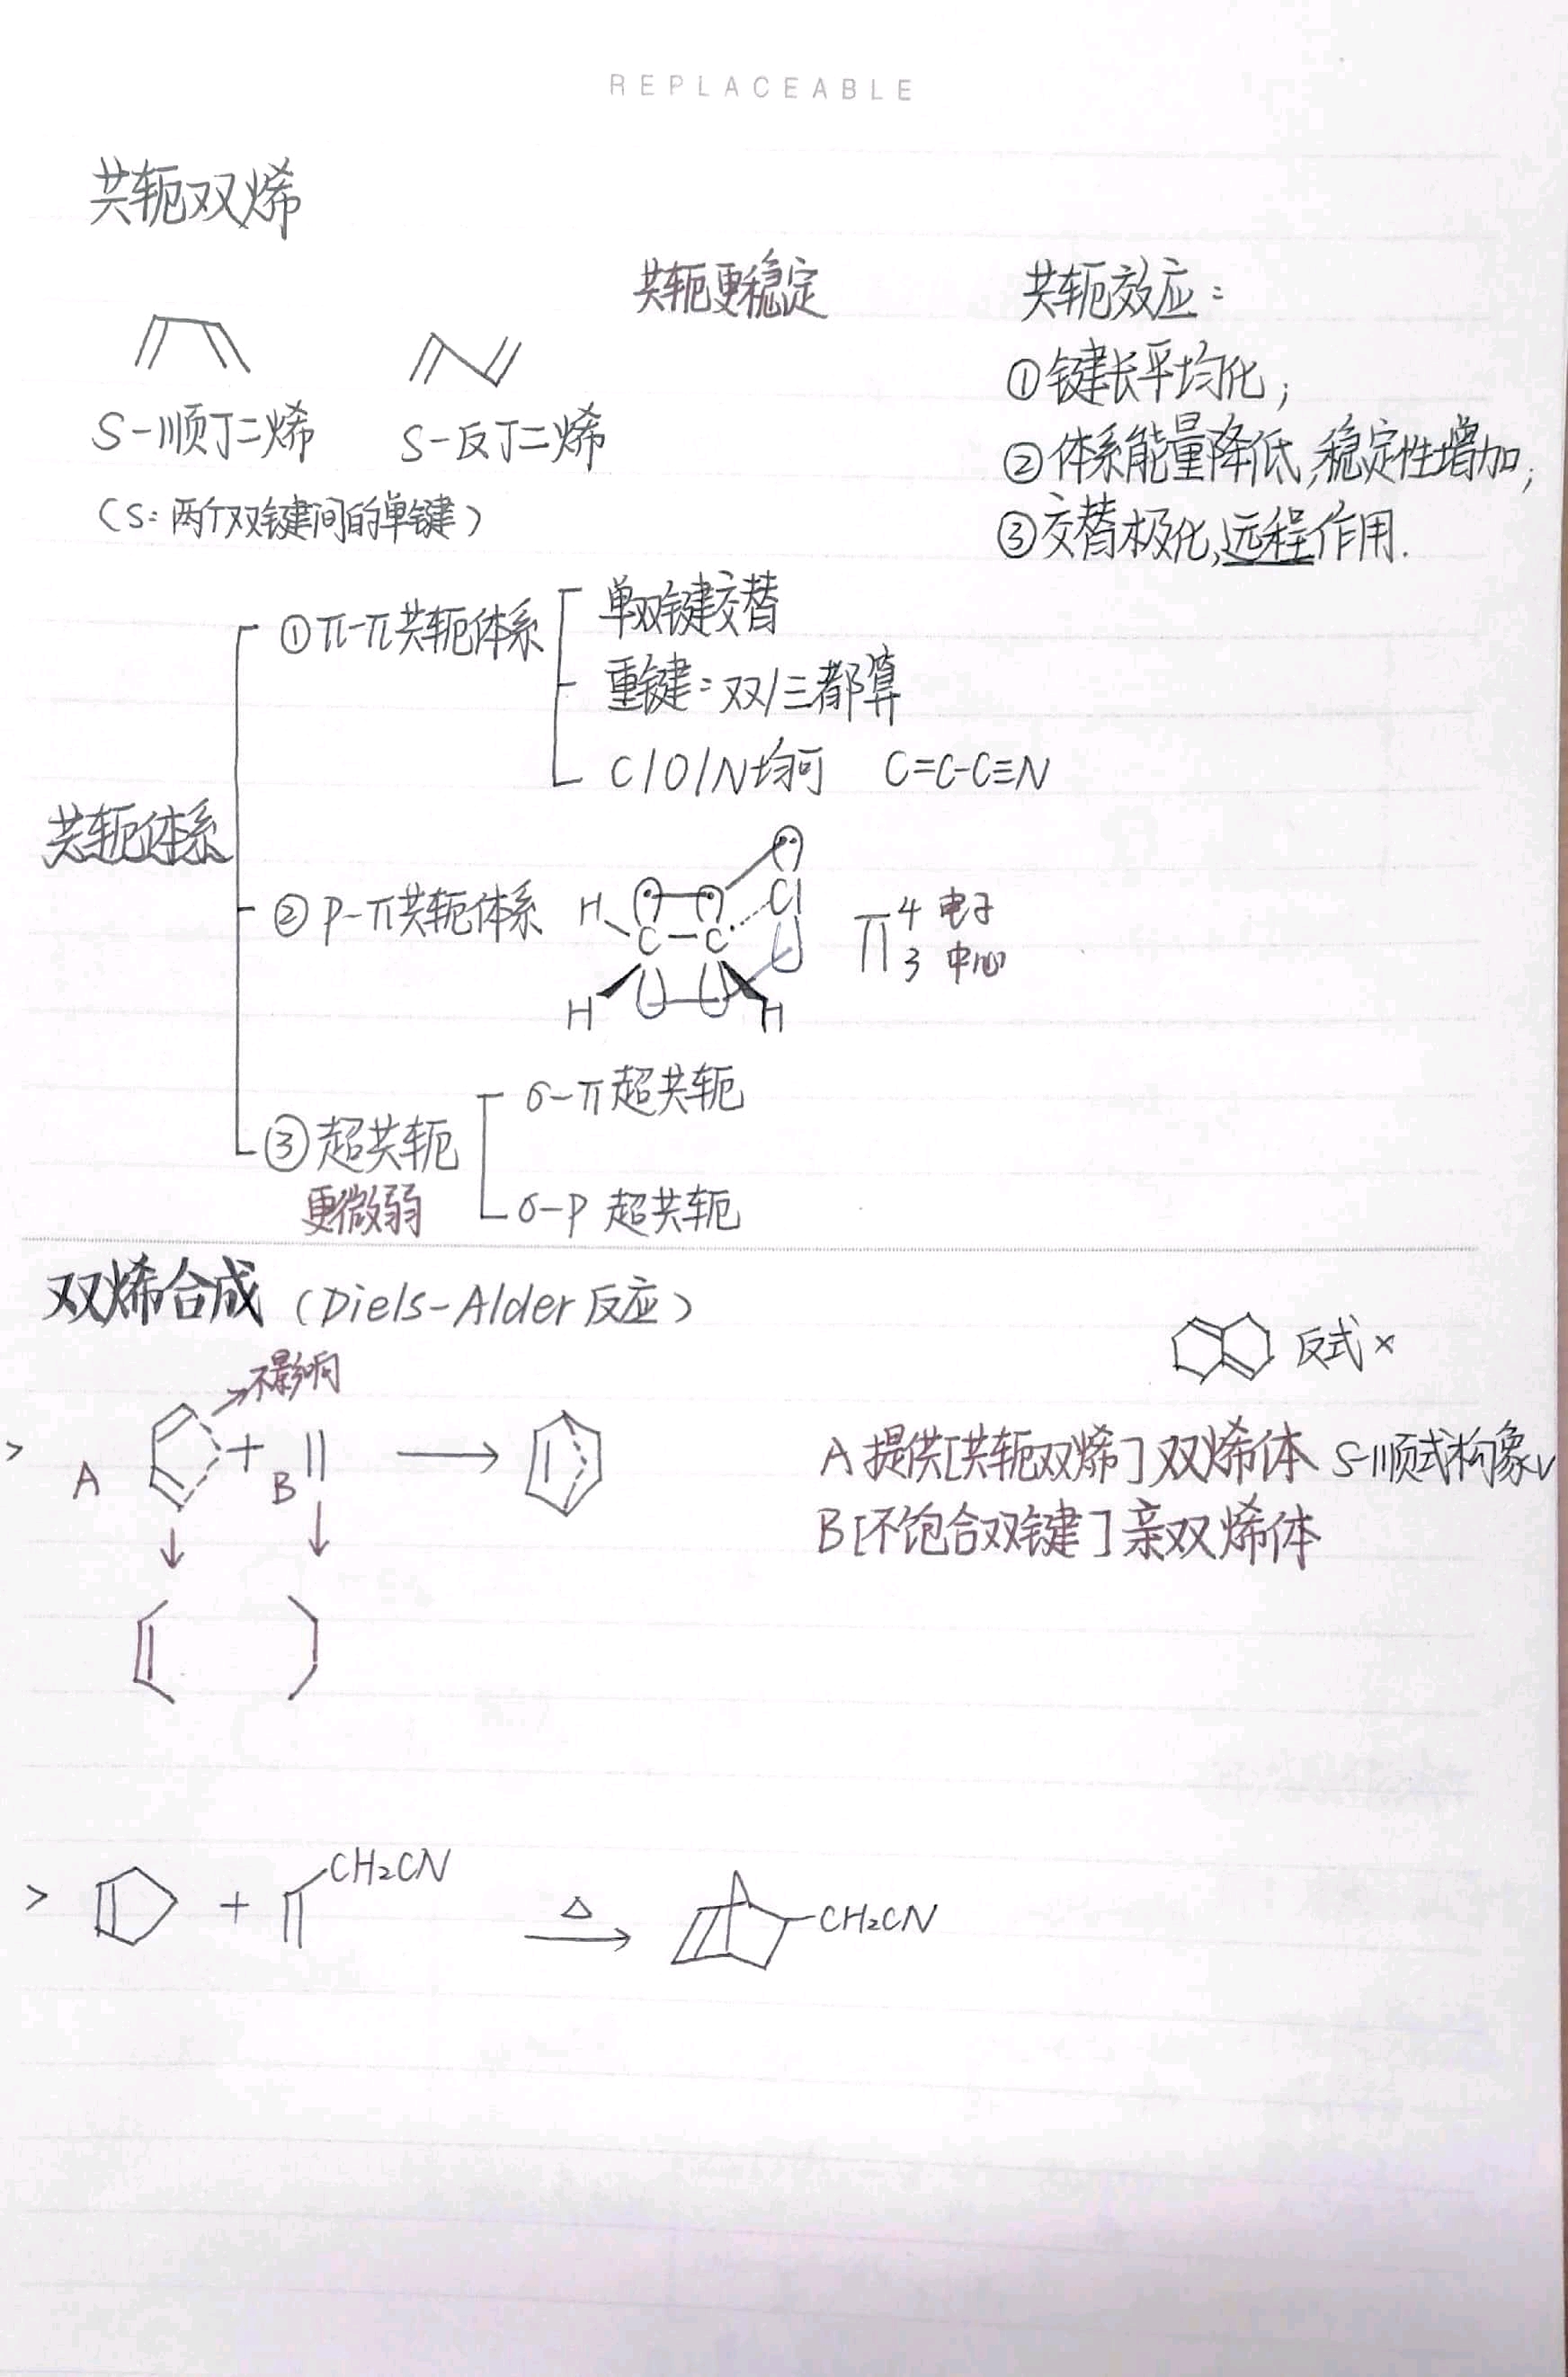 REPLACEABLE
共轭双烯
共轭更稳定
共轭效应:
①键长平均化;
②体系能量降低,稳定性增加;
③交替极化,远程作用.
S-顺丁二烯
S-反丁二烯
(S:两个双键间的单键)
共轭体系
①π-π共轭体系
单双键交替
重键:双/三都算
C/O/N均可 C=C-C≡N
②P-π共轭体系
H C-C Cl
H H
π⁴₃ 电子 中心
③超共轭
更微弱
σ-π超共轭
σ-P 超共轭
双烯合成(Diels-Alder反应)
反式×
→不影响
> A + B →
A提供[共轭双烯]双烯体 S-顺式构象√
B[不饱合双键]亲双烯体
> + CH₂CN △→ -CH₂CN